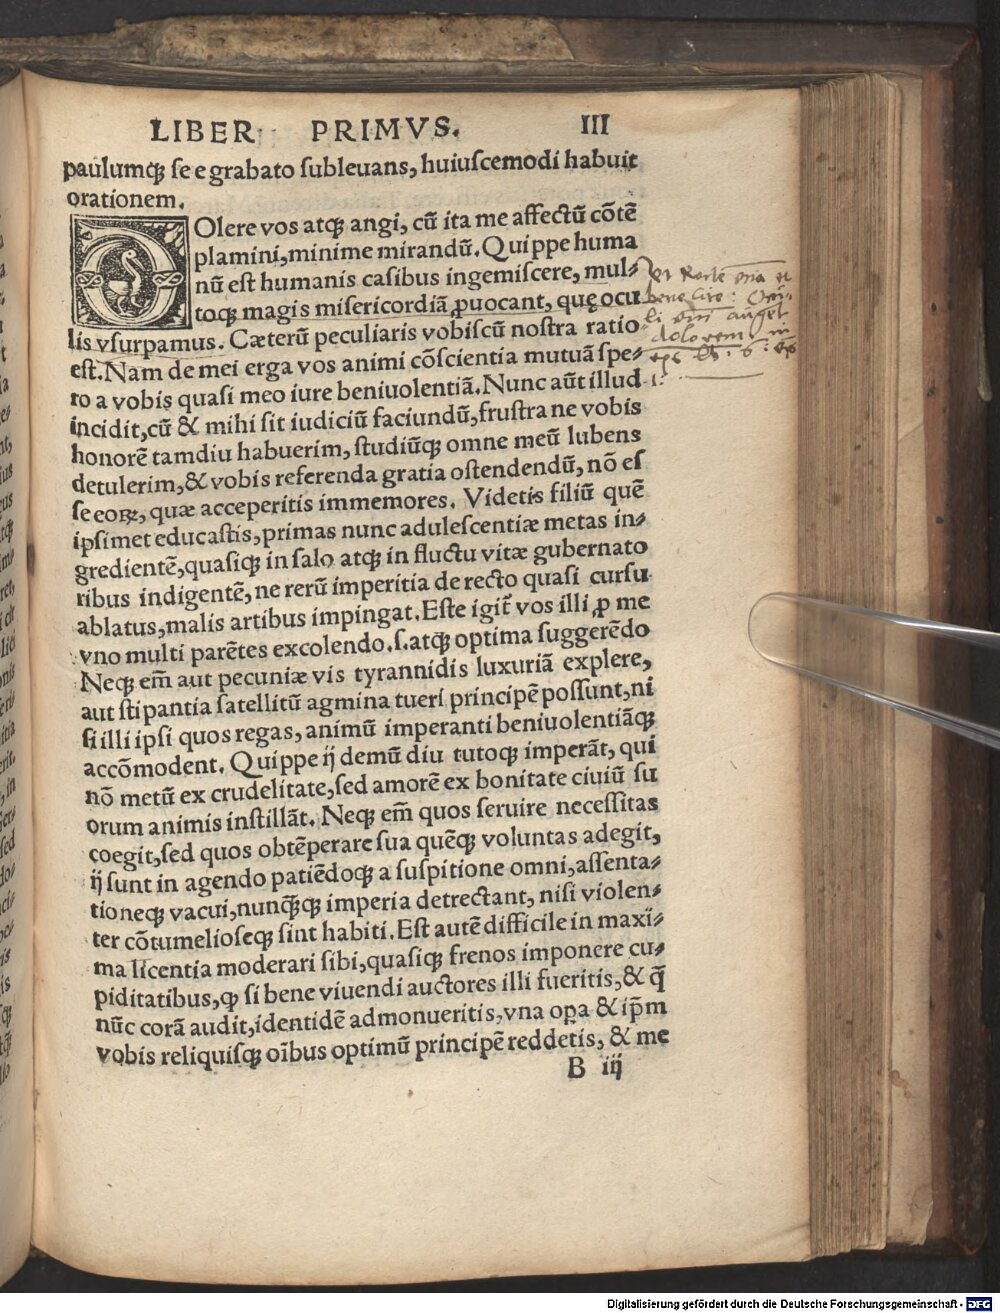 LIBER PRIMVS. III
paulumqꝫ ſe e grabato ſubleuans, huiuſcemodi habuit
orationem.
DOlere vos atqꝫ angi, cū ita me affectū cōtē
plamini, minime mirandū. Quippe huma
nū eſt humanis caſibus ingemiſcere, mul⸗
toqꝫ magis miſericordiā ꝓuocant, quę ocu
lis vſurpamus. Cæterū peculiaris vobiſcū noſtra ratio
eſt. Nam de mei erga vos animi cōſcientia mutuā ſpe⸗
ro a vobis quaſi meo iure beniuolentiā. Nunc aūt illud
incidit, cū & mihi ſit iudiciū faciundū, fruſtra ne vobis
honorē tamdiu habuerim, ſtudiūqꝫ omne meū lubens
detulerim, & vobis referenda gratia oſtendendū, nō eſ
ſe eoꝝ, quæ acceperitis immemores. Videtis filiū quē
ipſimet educaſtis, primas nunc aduleſcentiæ metas in⸗
gredientē, quaſiqꝫ in ſalo atqꝫ in fluctu vitæ gubernato
ribus indigentē, ne rerū imperitia de recto quaſi curſu
ablatus, malis artibus impingat. Eſte igit̄ vos illi ꝓ me
vno multi parētes excolendo .ſ. atqꝫ optima ſuggerēdo
Neqꝫ em̄ aut pecuniæ vis tyrannidis luxuriā explere,
aut ſtipantia ſatellitū agmina tueri principē poſſunt, ni
ſi illi ipſi quos regas, animū imperanti beniuolentiāqꝫ
accōmodent. Quippe ij demū diu tutoqꝫ imperāt, qui
nō metū ex crudelitate, ſed amorē ex bonitate ciuiū ſu
orum animis inſtillāt. Neqꝫ em̄ quos ſeruire neceſſitas
coegit, ſed quos obtēperare ſua quēqꝫ voluntas adegit,
ij ſunt in agendo patiēdoqꝫ a ſuſpitione omni, aſſenta⸗
tioneqꝫ vacui, nunq̄qꝫ imperia detrectant, niſi violen⸗
ter cōtumelioſeqꝫ ſint habiti. Eſt autē difficile in maxi⸗
ma licentia moderari ſibi, quaſiqꝫ frenos imponere cu⸗
piditatibus, ꝙ ſi bene viuendi auctores illi fueritis, & q̄
nūc corā audit, identidē admonueritis, vna oꝑa & ip̄m
vobis reliquiſqꝫ oībus optimū principē reddetis, & me
B iij
dolorem
Digitalisierung gefördert durch die Deutsche Forschungsgemeinschaft - DFG